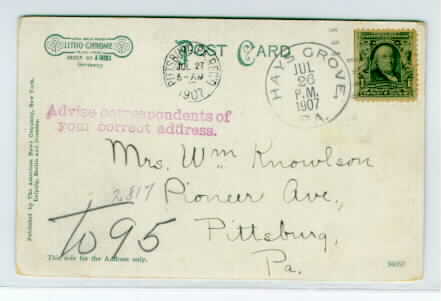 LITHO-CHROME
Germany
POST CARD
PITTSBURG
JUL 27
6-AM
1907
HAYS GROVE,
JUL
26
P.M.
1907
PA.
Advise correspondents of
your correct address.
Mrs. Wm Knowlson
2817
Pioneer Ave.,
To 95
Pittsburg,
Pa.
This side for the Address only.
Published by The American News Company, New York.
Leipzig, Berlin and Dresden.